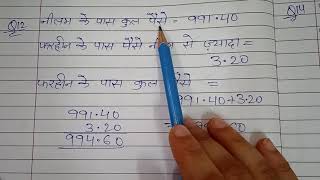 Q12 नीलम के पास कुल पैसे = 991.40 Q14
फरहीन के पास पैसे नीलम से ज़्यादा =
3.20
फरहीन के पास कुल पैसे =
991.40+3.20
991.40
3.20
994.60